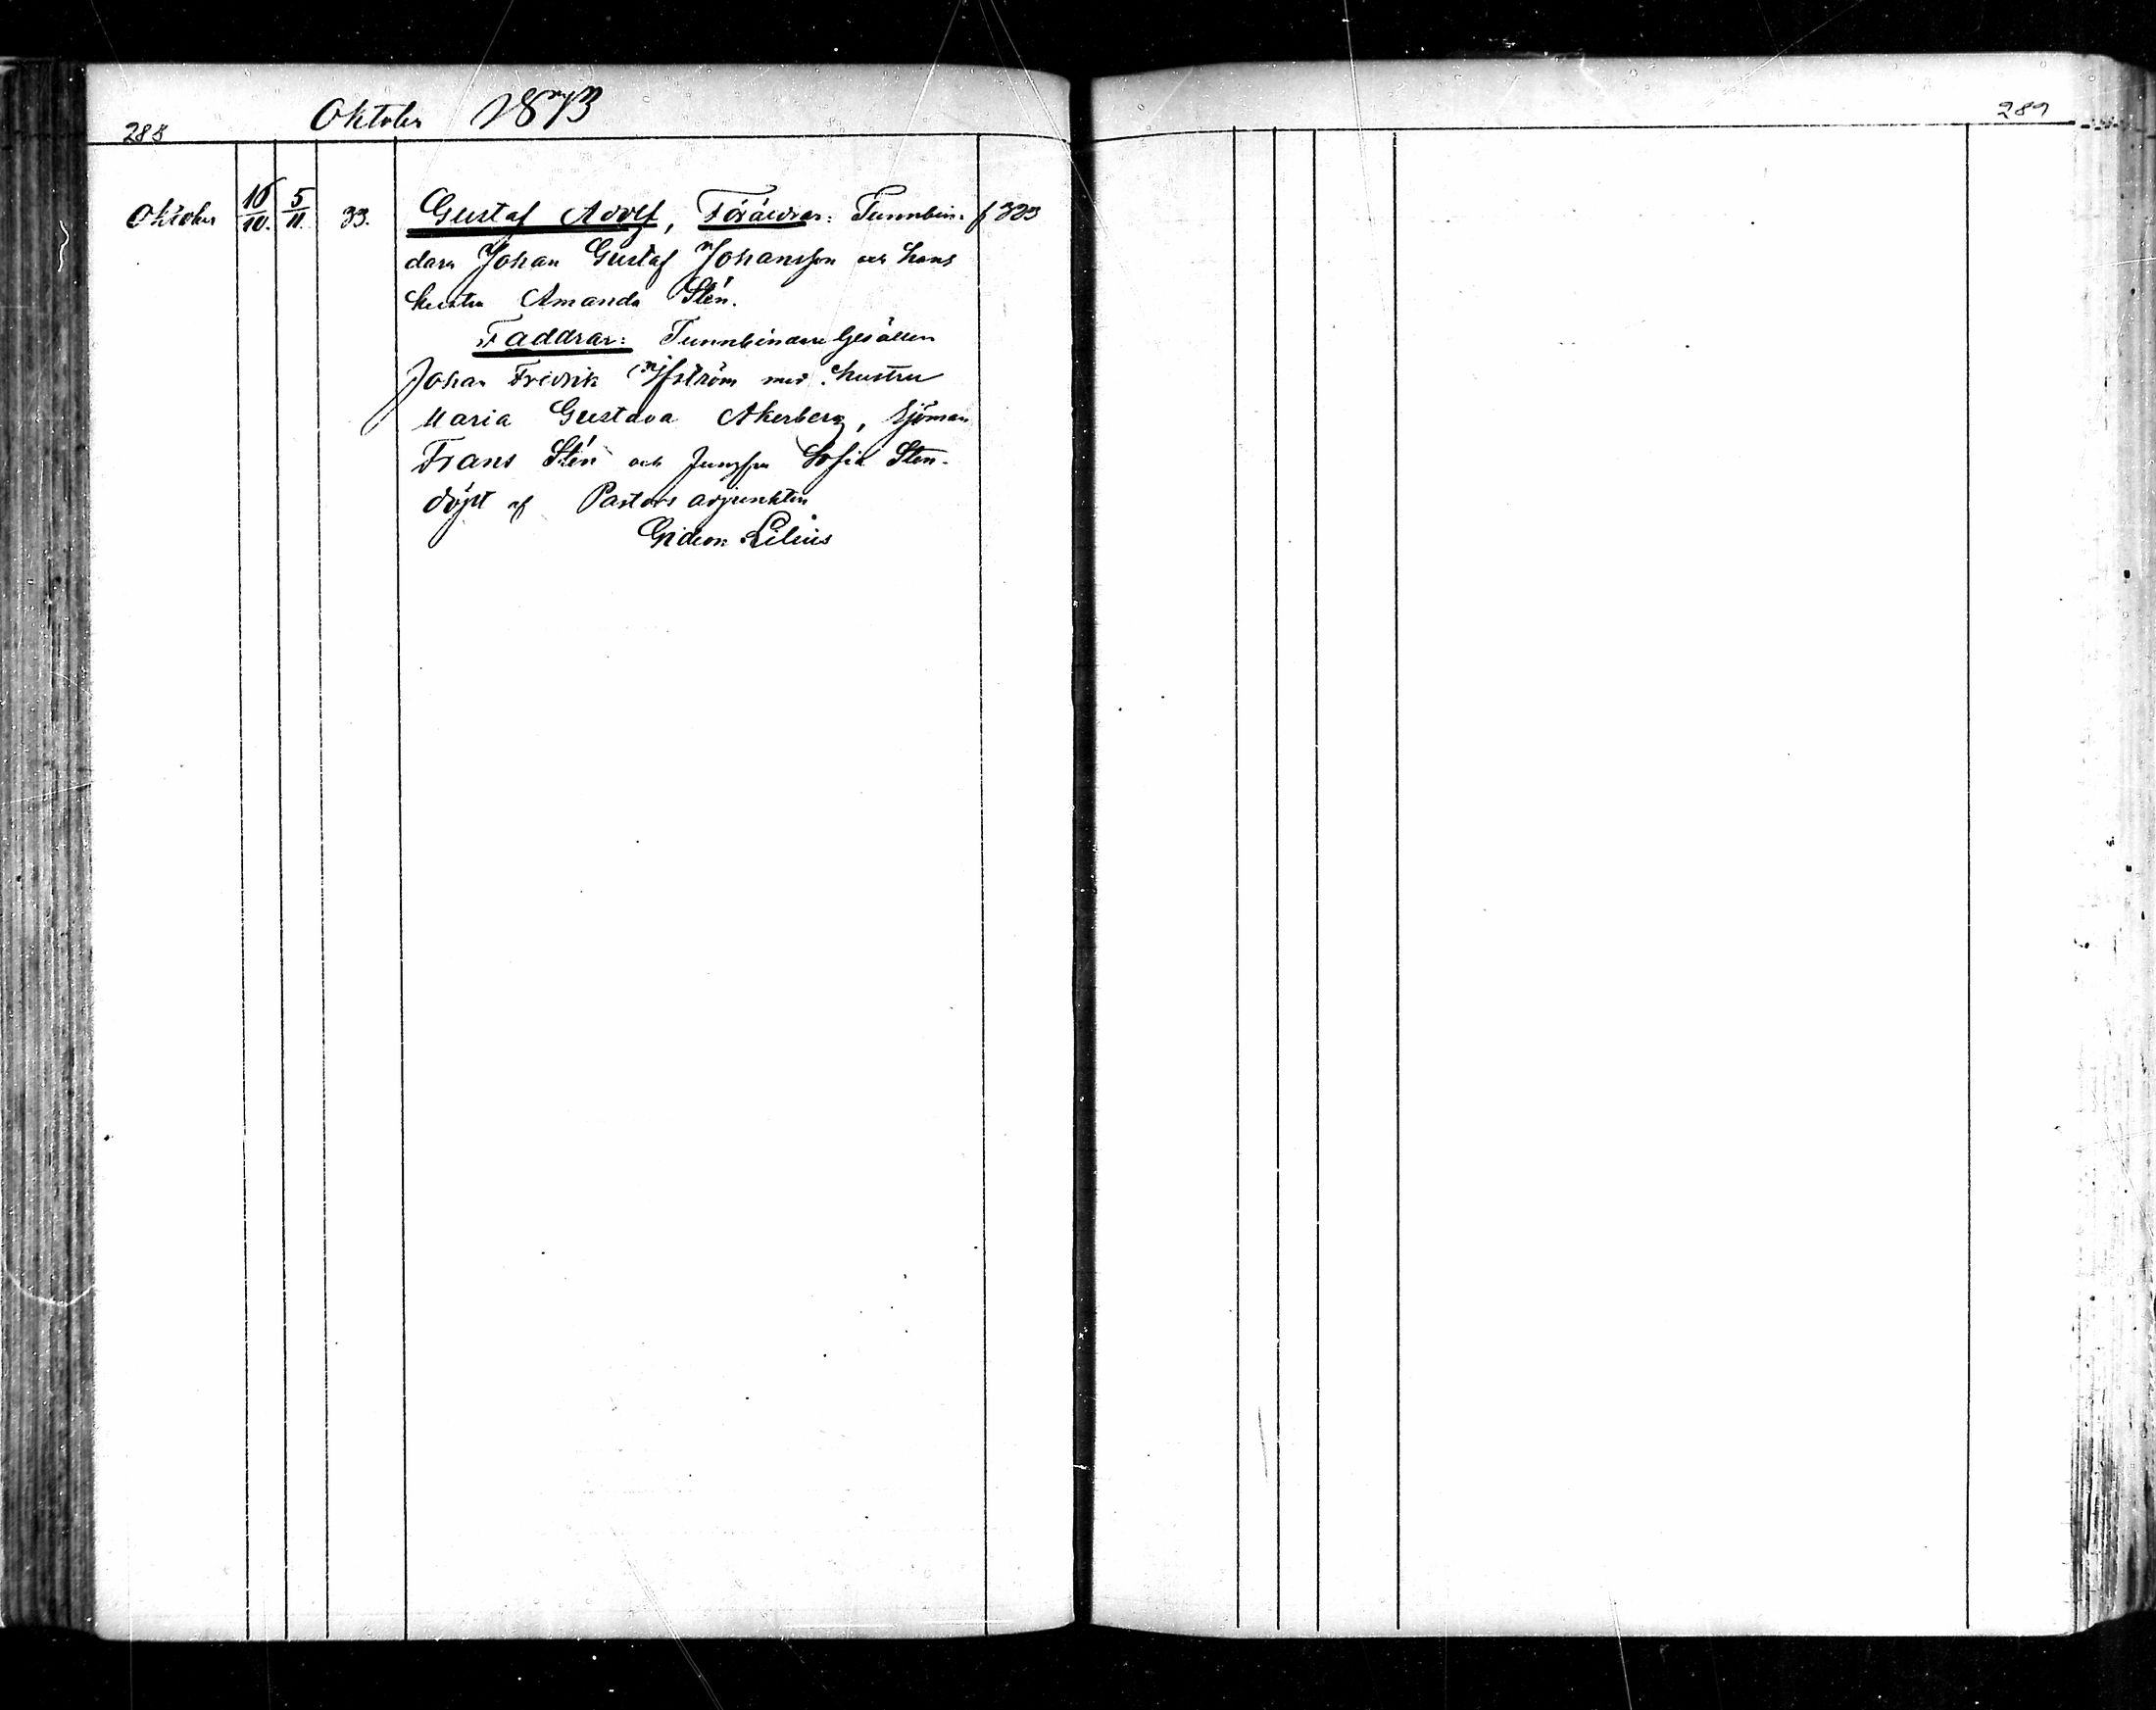 288
Oktober 1873
289
Oktober 16/10. 5/11. 33. Gustaf Adolf, Föräldrar: Tunnbin- f 323
dare Johan Gustaf Johansson och hans
hustru Amanda Stén.
Faddrar: Tunnbindare Gesällen
Johan Fredrik med hustru
Maria Gustava Åkerberg, Sjöman
Frans Stén och Jungfru Sofia Sten.
döpt af Pastors adjunkten
Gideon Lilius